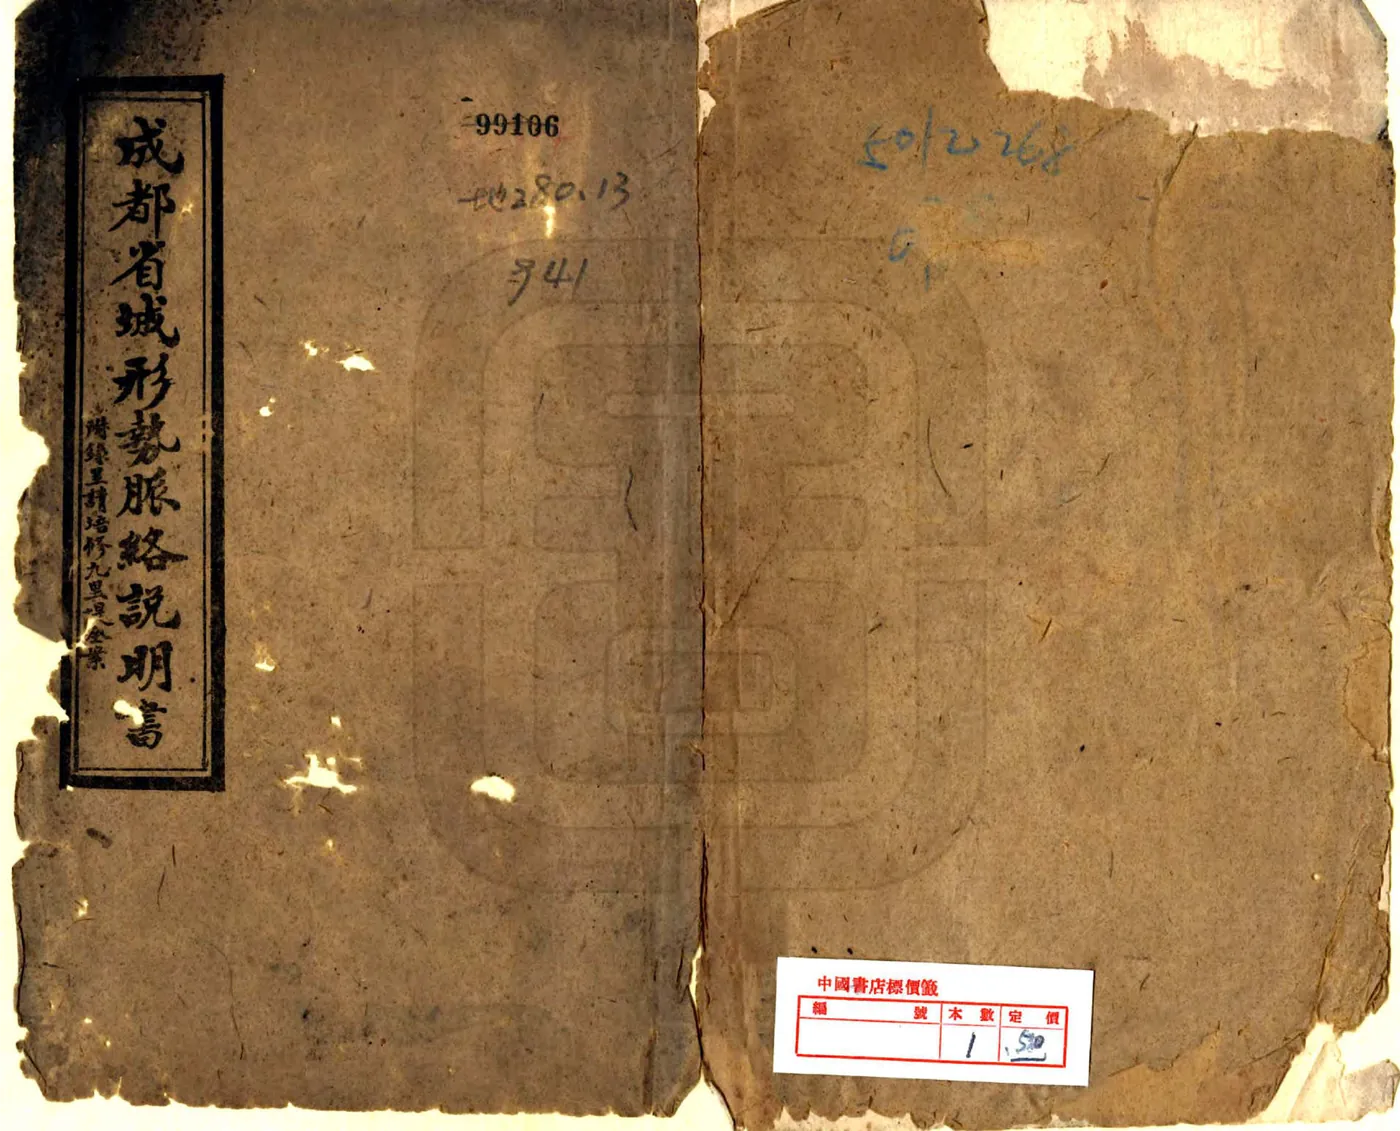 成都省城形勢脈絡説明書
附錄呈請培修九里堤全案
99106
地280.13
941
5012 268
中國書店標價籤
編號 本數 定價
1 .50